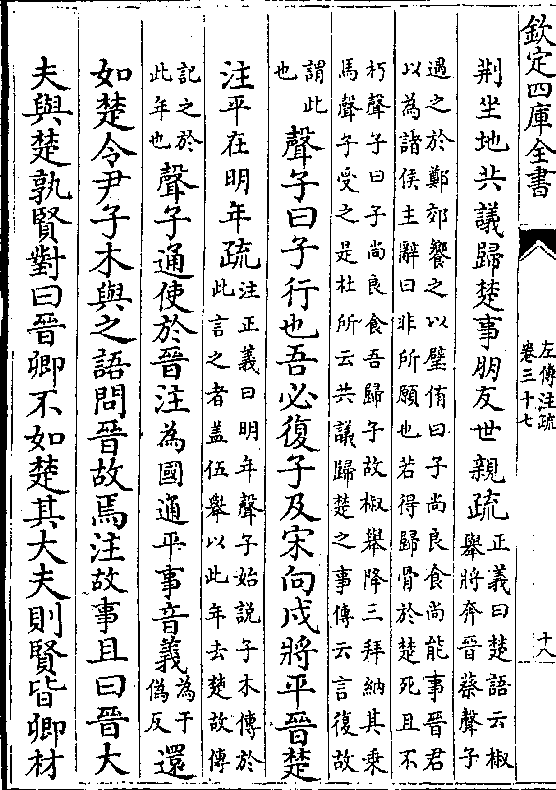 欽定四庫全書
左傳注疏
卷三十七
十八
荆坐地共議歸楚事朋友世親疏
正義曰楚語云椒
舉將奔晉蔡聲子
遇之於鄭郊饗之以璧侑曰子尚良食尚能事晉君
以為諸侯主辭曰非所願也若得歸骨於楚死且不
朽聲子曰子尚良食吾歸子故椒舉降三拜納其乗
馬聲子受之是杜所云共議歸楚之事傳云言復故
謂此
也
聲子曰子行也吾必復子及宋向戌將平晉楚
注平在明年疏
注正義曰明年聲子始説子木傳於
此言之者盖伍舉以此年去楚故傳
記之於
此年也
聲子通使於晉注為國通平事音義
為于
偽反
還
如楚令尹子木與之語問晉故焉注故事且曰晉大
夫與楚孰賢對曰晉卿不如楚其大夫則賢皆卿材